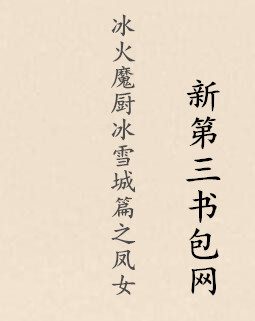 新第三书包网
冰火魔厨冰雪城篇之凤女